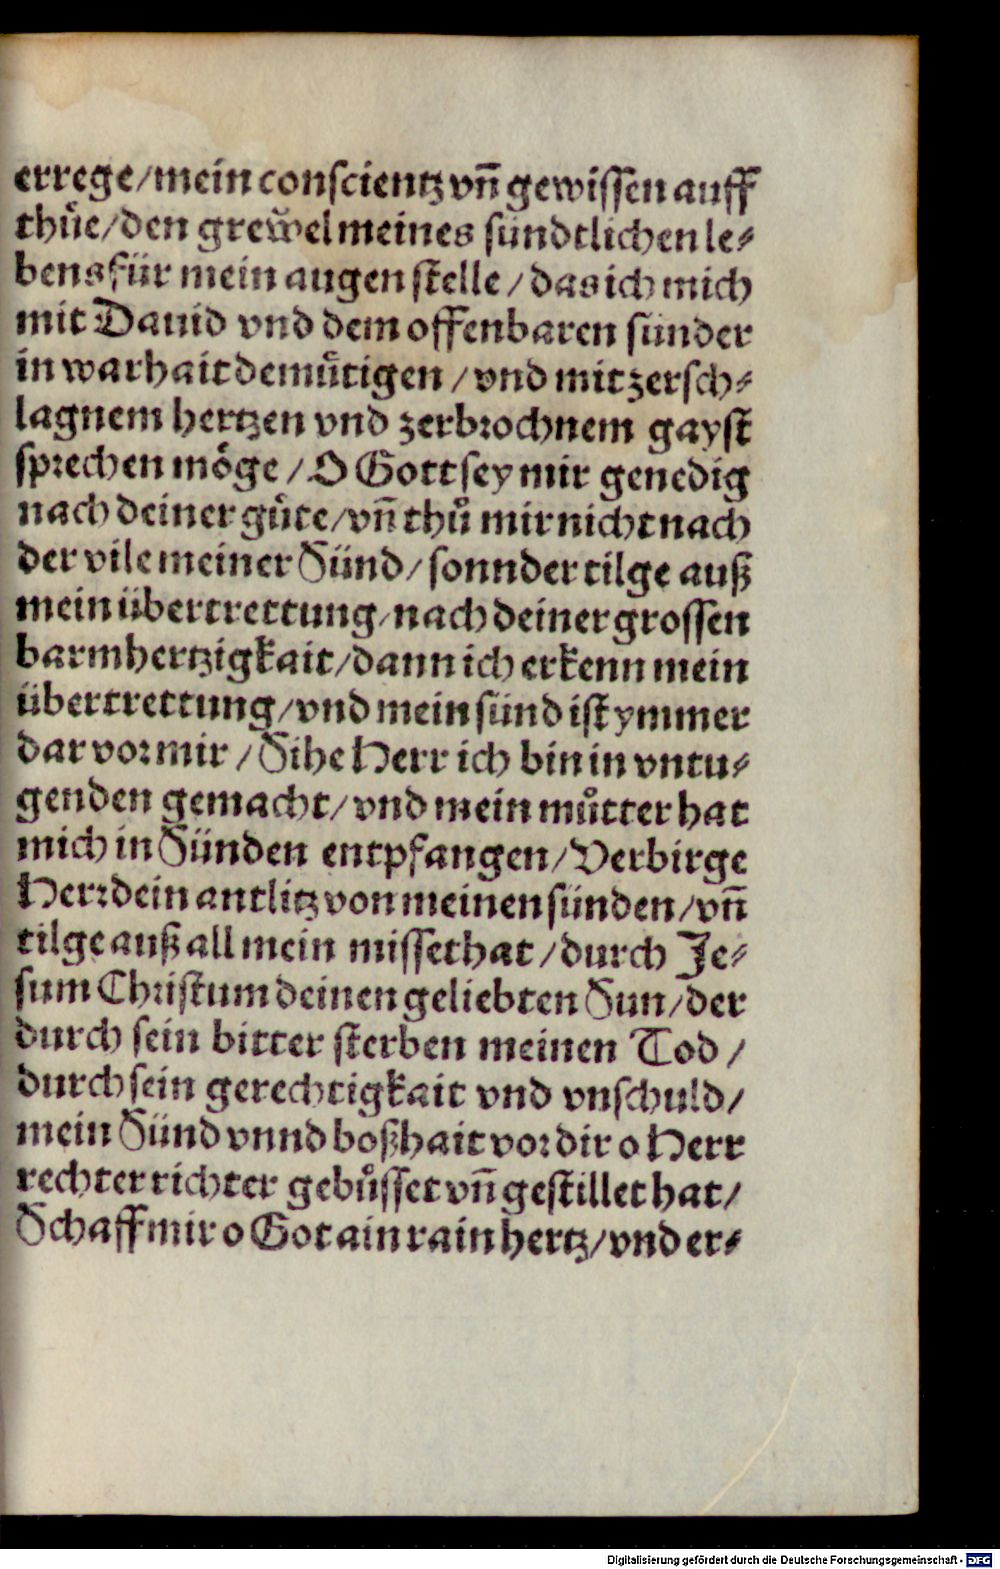 errege/mein conscientz vn̄ gewissen auff
thuͤe/den greẅel meines sündtlichen le⸗
bens für mein augen stelle/das ich mich
mit Dauid vnd dem offenbaren sünder
in warhait demuͤtigen/vnd mit zersch⸗
lagnem hertzen vnd zerbrochnem gayst
sprechen moͤge/O Gott sey mir genedig
nach deiner guͤte/vn̄ thuͦ mir nicht nach
der vile meiner Sünd/sonnder tilge auß
mein übertrettung/nach deiner grossen
barmhertzigkait/dann ich erkenn mein
übertrettung/vnd mein sünd ist ymmer
dar vor mir/Sihe Herr ich bin in vntu⸗
genden gemacht/vnd mein muͦtter hat
mich in Sünden entpfangen/Verbirge
Herr dein antlitz von meinen sünden/vn̄
tilge auß all mein missethat/durch Je⸗
sum Christum deinen geliebten Sun/der
durch sein bitter sterben meinen Tod/
durch sein gerechtigkait vnd vnschuld/
mein Sünd vnnd boßhait vor dir o Herr
rechter richter gebuͤsset vn̄ gestillet hat/
Schaff mir o Got ain rain hertz/vnd er⸗
Digitalisierung gefördert durch die Deutsche Forschungsgemeinschaft - DFG